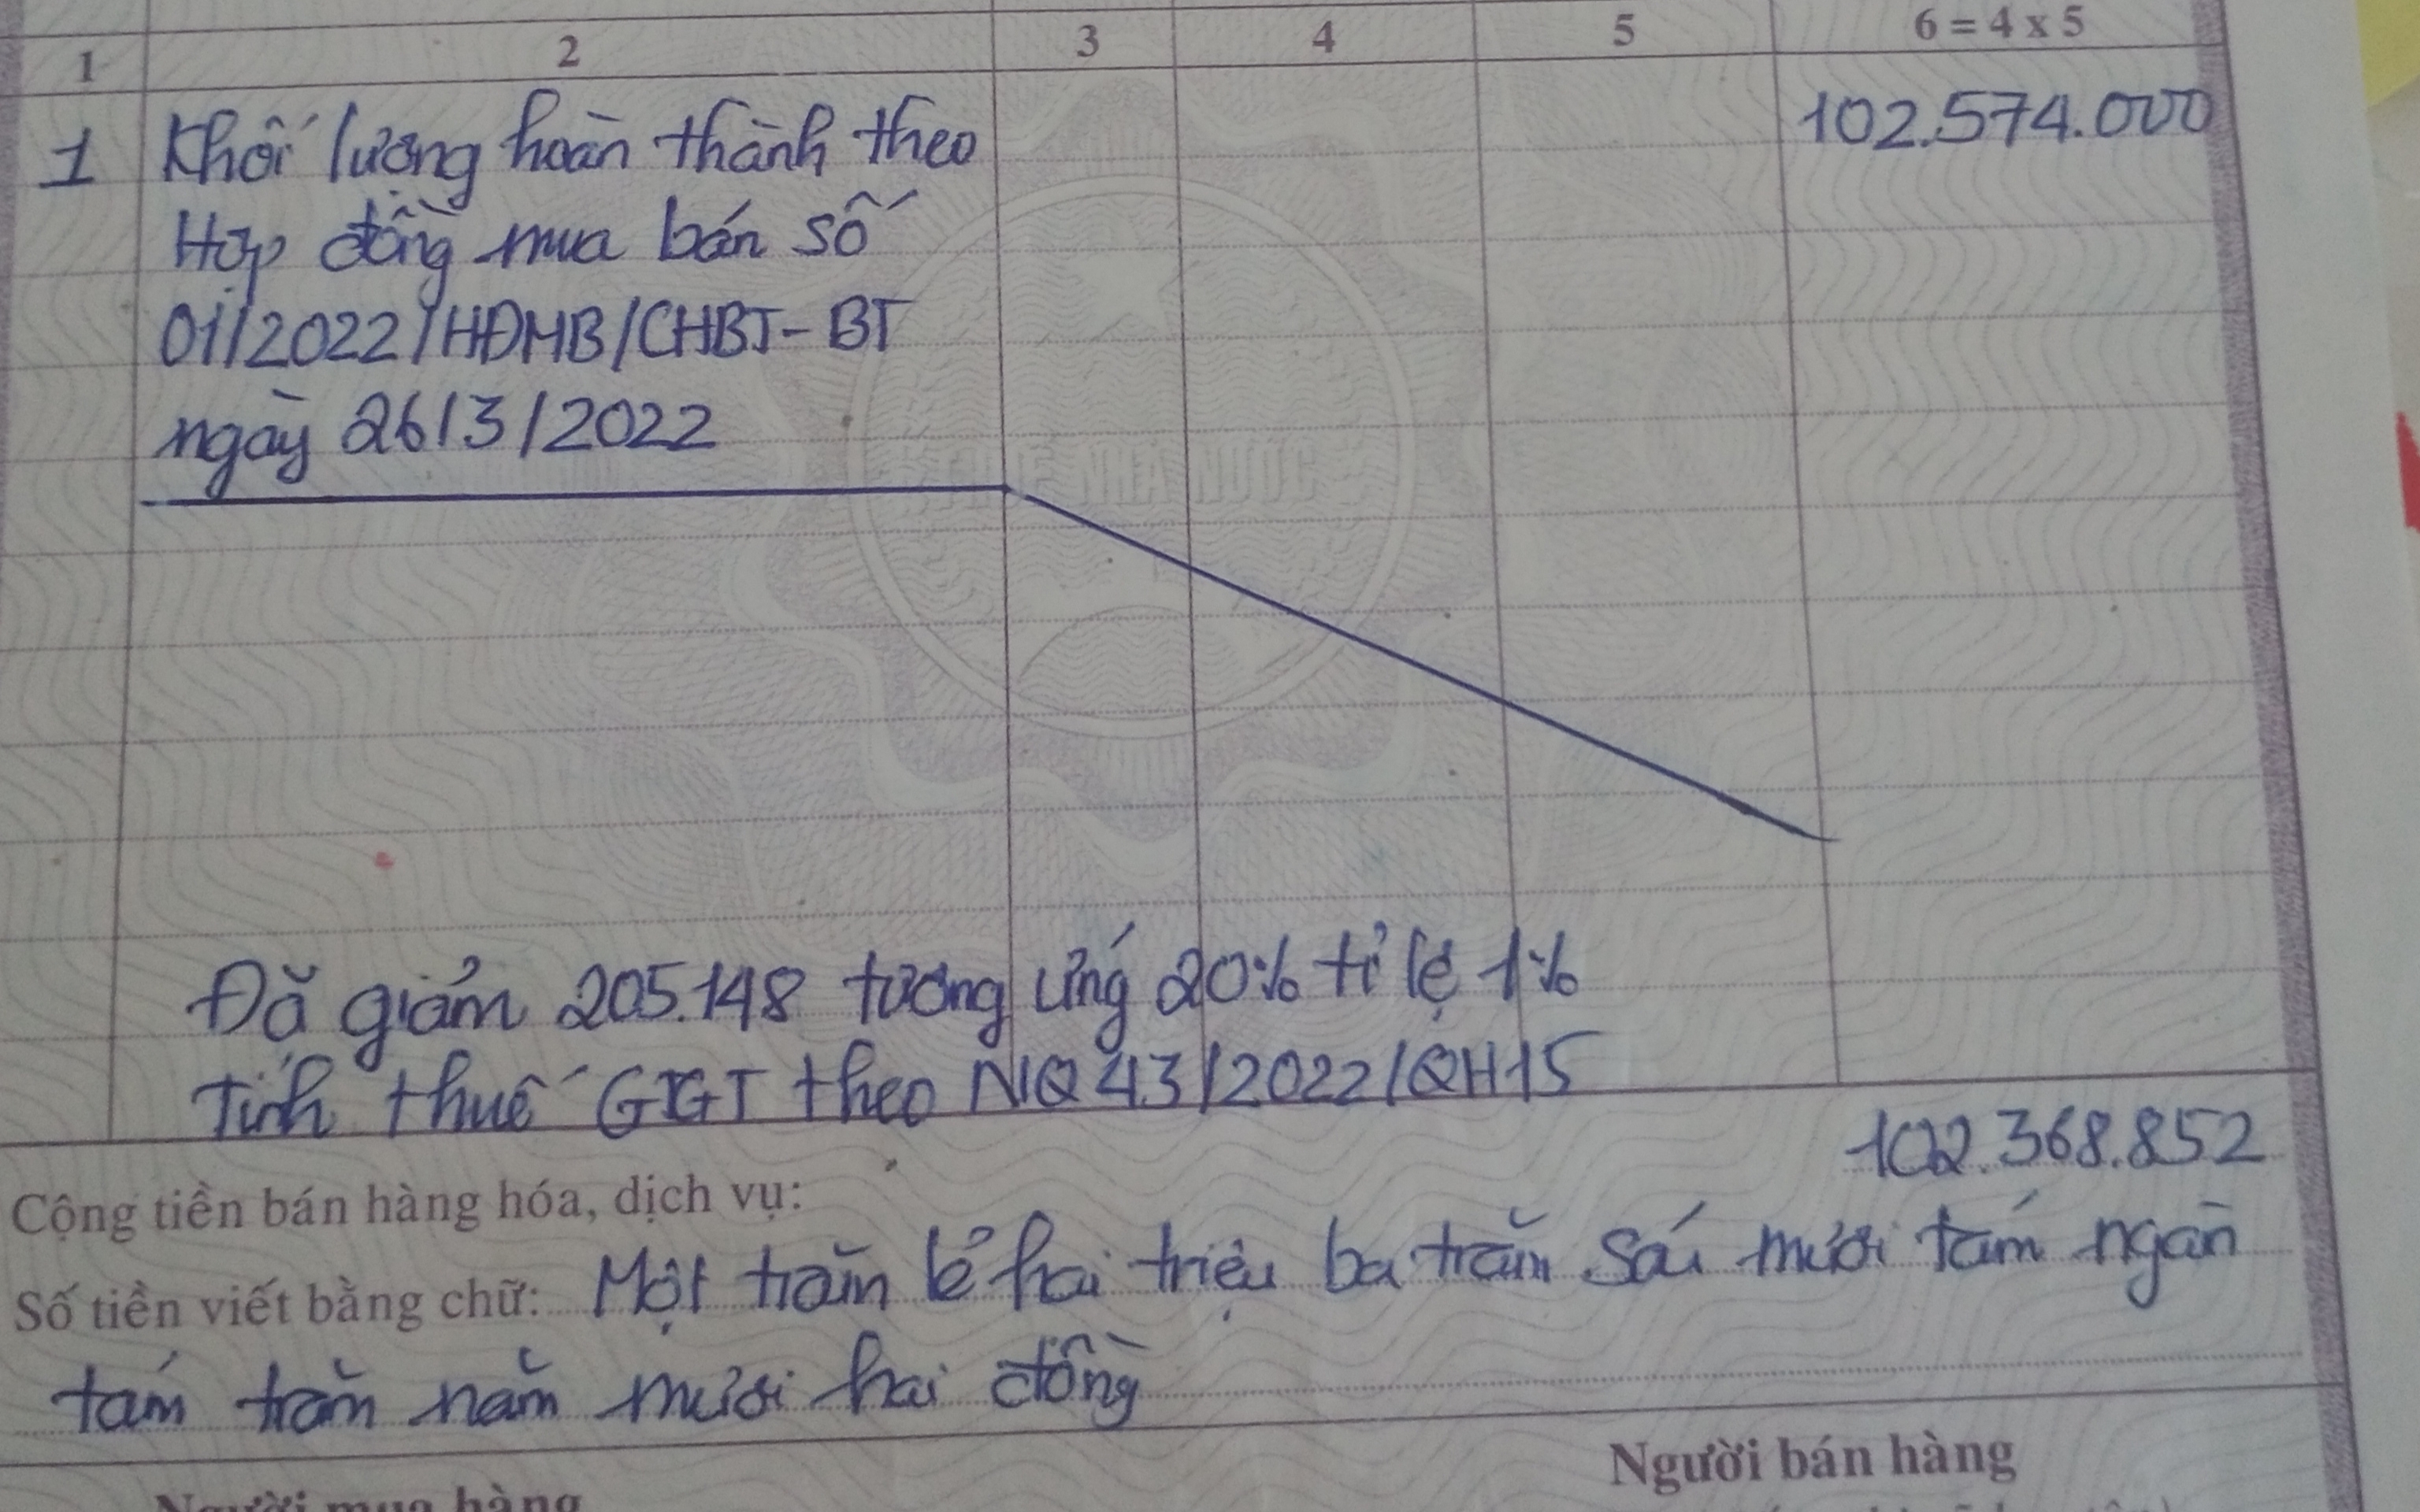 1 2 3 4 5 6 = 4 x 5
1 Khối lượng hoàn thành theo 102.574.000
Hợp đồng mua bán số
01/2022/HĐMB/CHBT-BT
ngày 26/3/2022
NHÀ NƯỚC
Đã giảm 205.148 tương ứng 20% tỉ lệ 1%
Tính thuế GTGT theo NQ 43/2022/QH15
102.368.852
Cộng tiền bán hàng hóa, dịch vụ:
Số tiền viết bằng chữ: Một trăm lẻ hai triệu ba trăm sáu mươi tám ngàn
tám trăm năm mươi hai đồng
Người bán hàng
Người mua hàng